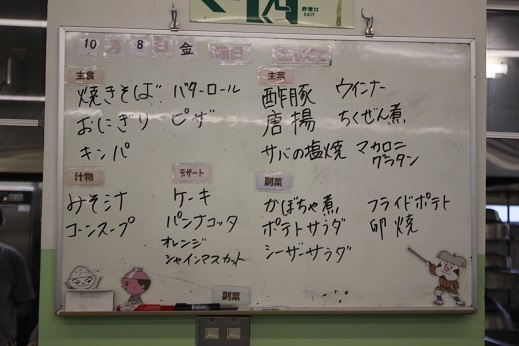 非常口
EXIT
10月8日金曜日
主食
焼きそば バターロール
おにぎり ピザ
キンパ
主菜
酢豚 ウインナー
唐揚 ちくぜん煮
サバの塩焼 マカロニグラタン
汁物
みそ汁
コーンスープ
デザート
ケーキ
パンナコッタ
オレンジ
シャインマスカット
副菜
かぼちゃ煮 フライドポテト
ポテトサラダ 卵焼
シーザーサラダ
副菜